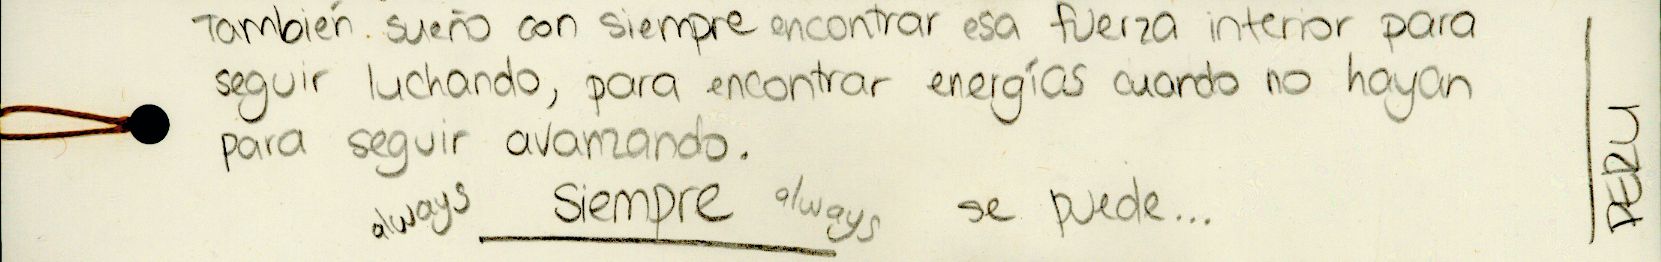 También sueño con siempre encontrar esa fuerza interior para
seguir luchando, para encontrar energías cuando no hayan
para seguir avanzando.
always siempre always se puede...
PERU